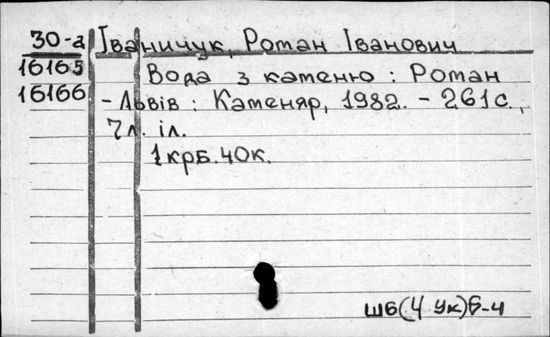 30-а Іваничук, Роман Іванович
16165 Вода з каменю : Роман
16166 - Львів : Каменяр, 1982. - 261с.,
7л. іл.
1крб.40к.
Ш6(4 Ук)6-4